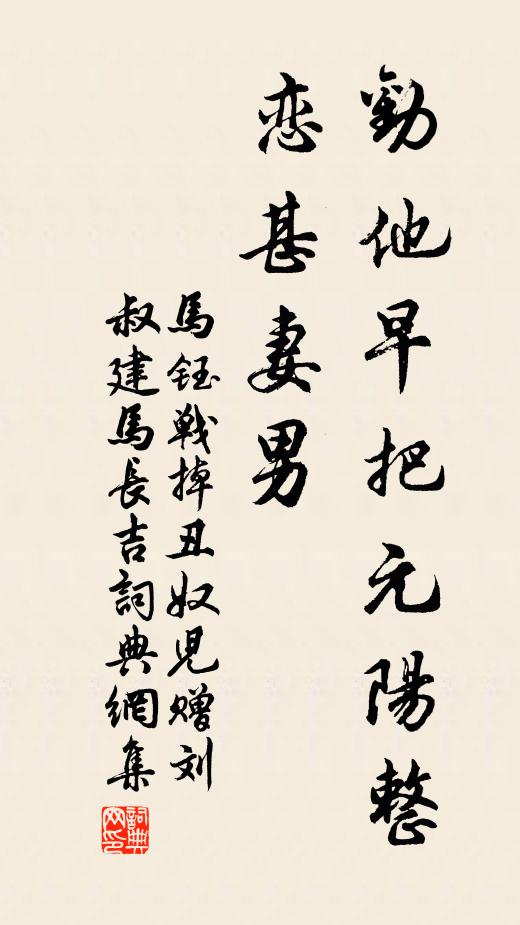 勸他早把元陽整
恋甚妻男
馬鈺戰掉丑奴児赠刘
叔建馬長吉詞典網集
詞典
网印